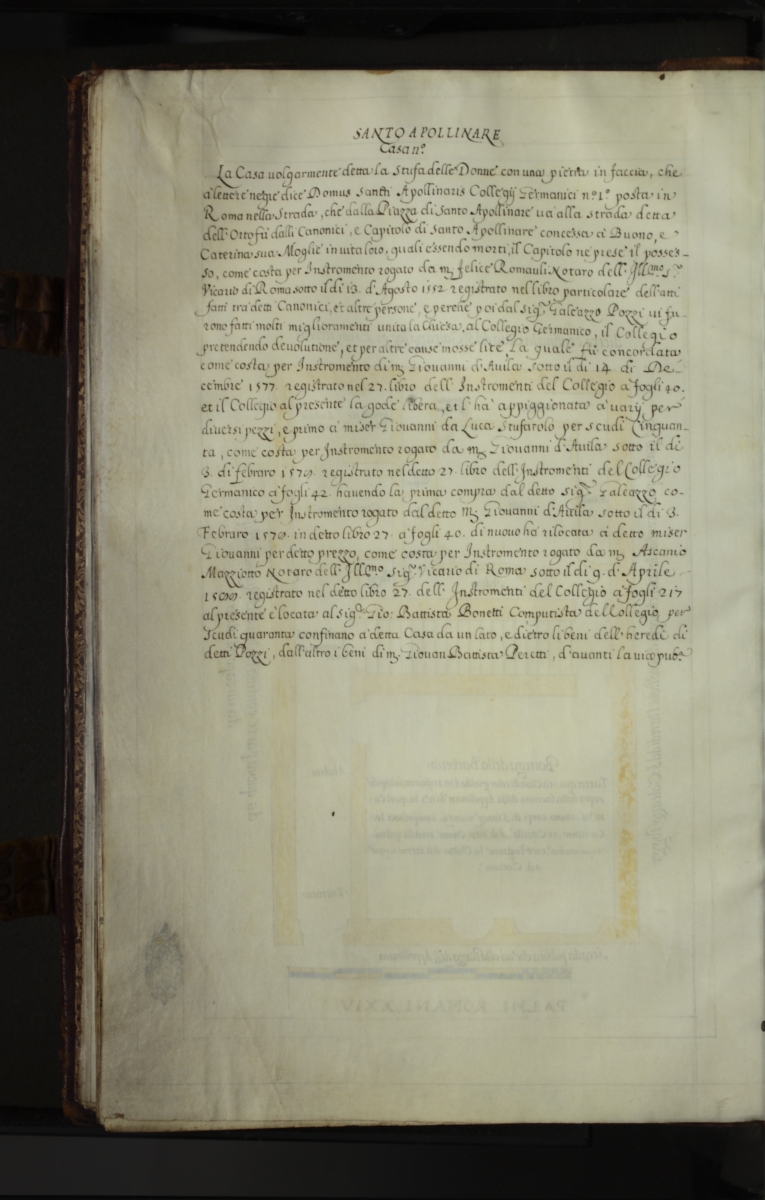 SANTO APOLLINARE
Casa nº
La Casa volgarmente detta la Stufa delle Donne con una pietra in faccia, che
a lettere negre dice Domus Sancti Apollinaris Collegij Germanici nº 1º posta in
Roma nella Strada, che dalla Piazza di Santo Apollinare va alla strada detta
dell'Otto fù dalli Canonici, e Capitolo di Santo Apollinare concessa à Buono, e
Caterina sua Moglie in vita loro, quali essendo morti, il Capitolo ne prese il posses-
so, come costa per Instromento rogato da mº Felice Romauli Notaro dell' Illmo Sr
Vicario di Roma sotto il di 13. d'Agosto 1552 registrato nel libro particolare dell'atti
fatti tra detti Canonici, et altre persone, e perche poi dal sigr Galeazzo Pozzi vi fu-
rono fatti molti miglioramenti unita la Chiesa, al Collegio Germanico, il Collegio
pretendendo devolutione, et per altre cause mosse lite, La quale fù concordata
come costa per Instromento di mº Giovanni d'Avila sotto il di 14. di De-
cembre 1577. registrato nel 27. libro dell' Instromenti del Collegio à fogli 40.
et il Collegio al presente la gode libera, et l'hà appiggionata à varij per
diversi pezzi, e primo à miser Giovanni da Luca Stufarolo per scudi Cinquan-
ta, come costa per Instromento rogato da mº Giovanni d'Avila sotto il di
3. di febraro 1579. registrato nel detto 27. libro dell' Instromenti del Collegio
Germanico à fogli 42. havendo la prima compra dal detto sigr Galeazzo, co-
me costa per Instromento rogato dal detto mº Giovanni d'Avila sotto il di 3.
Febraro 1579. in detto libro 27. à fogli 40. di nuovo hà rilocata à detto miser
Giovanni per detto prezzo, come costa per Instromento rogato da mº Ascanio
Mazziotto Notaro dell' Illmo Sigr Vicario di Roma sotto il di 9. d'Aprile
registrato nel detto libro 27. dell' Instromenti del Collegio à fogli 217
al presente è locata al sigr Gio: Battista Bonetti Computista del Collegio per
scudi quaranta confinano à detta Casa da un lato, e dietro li beni dell' herede di
detti Pozzi, dall'altro i beni di mº Giovan Battista Peretti, d'avanti la via pubca